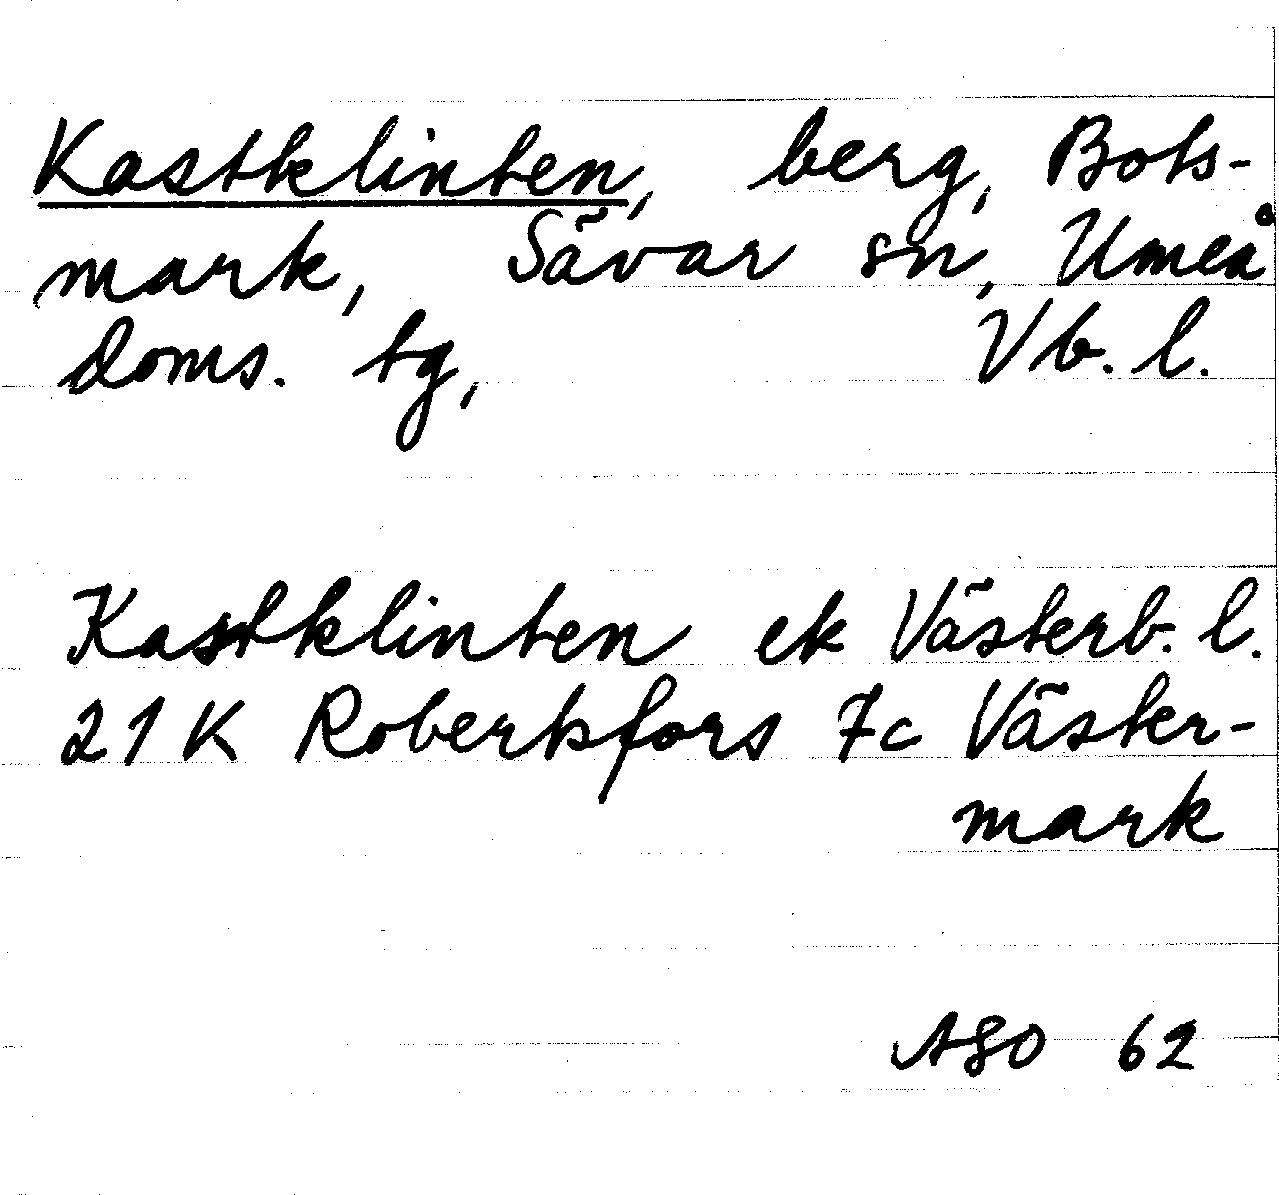 Kastklinten, berg, Bots-
mark, Sävar sn, Umeå
doms. tg, Vb. l.
Kastklinten ek Västerb. l.
21 K Robertsfors 7c Väster-
mark
ASO 62